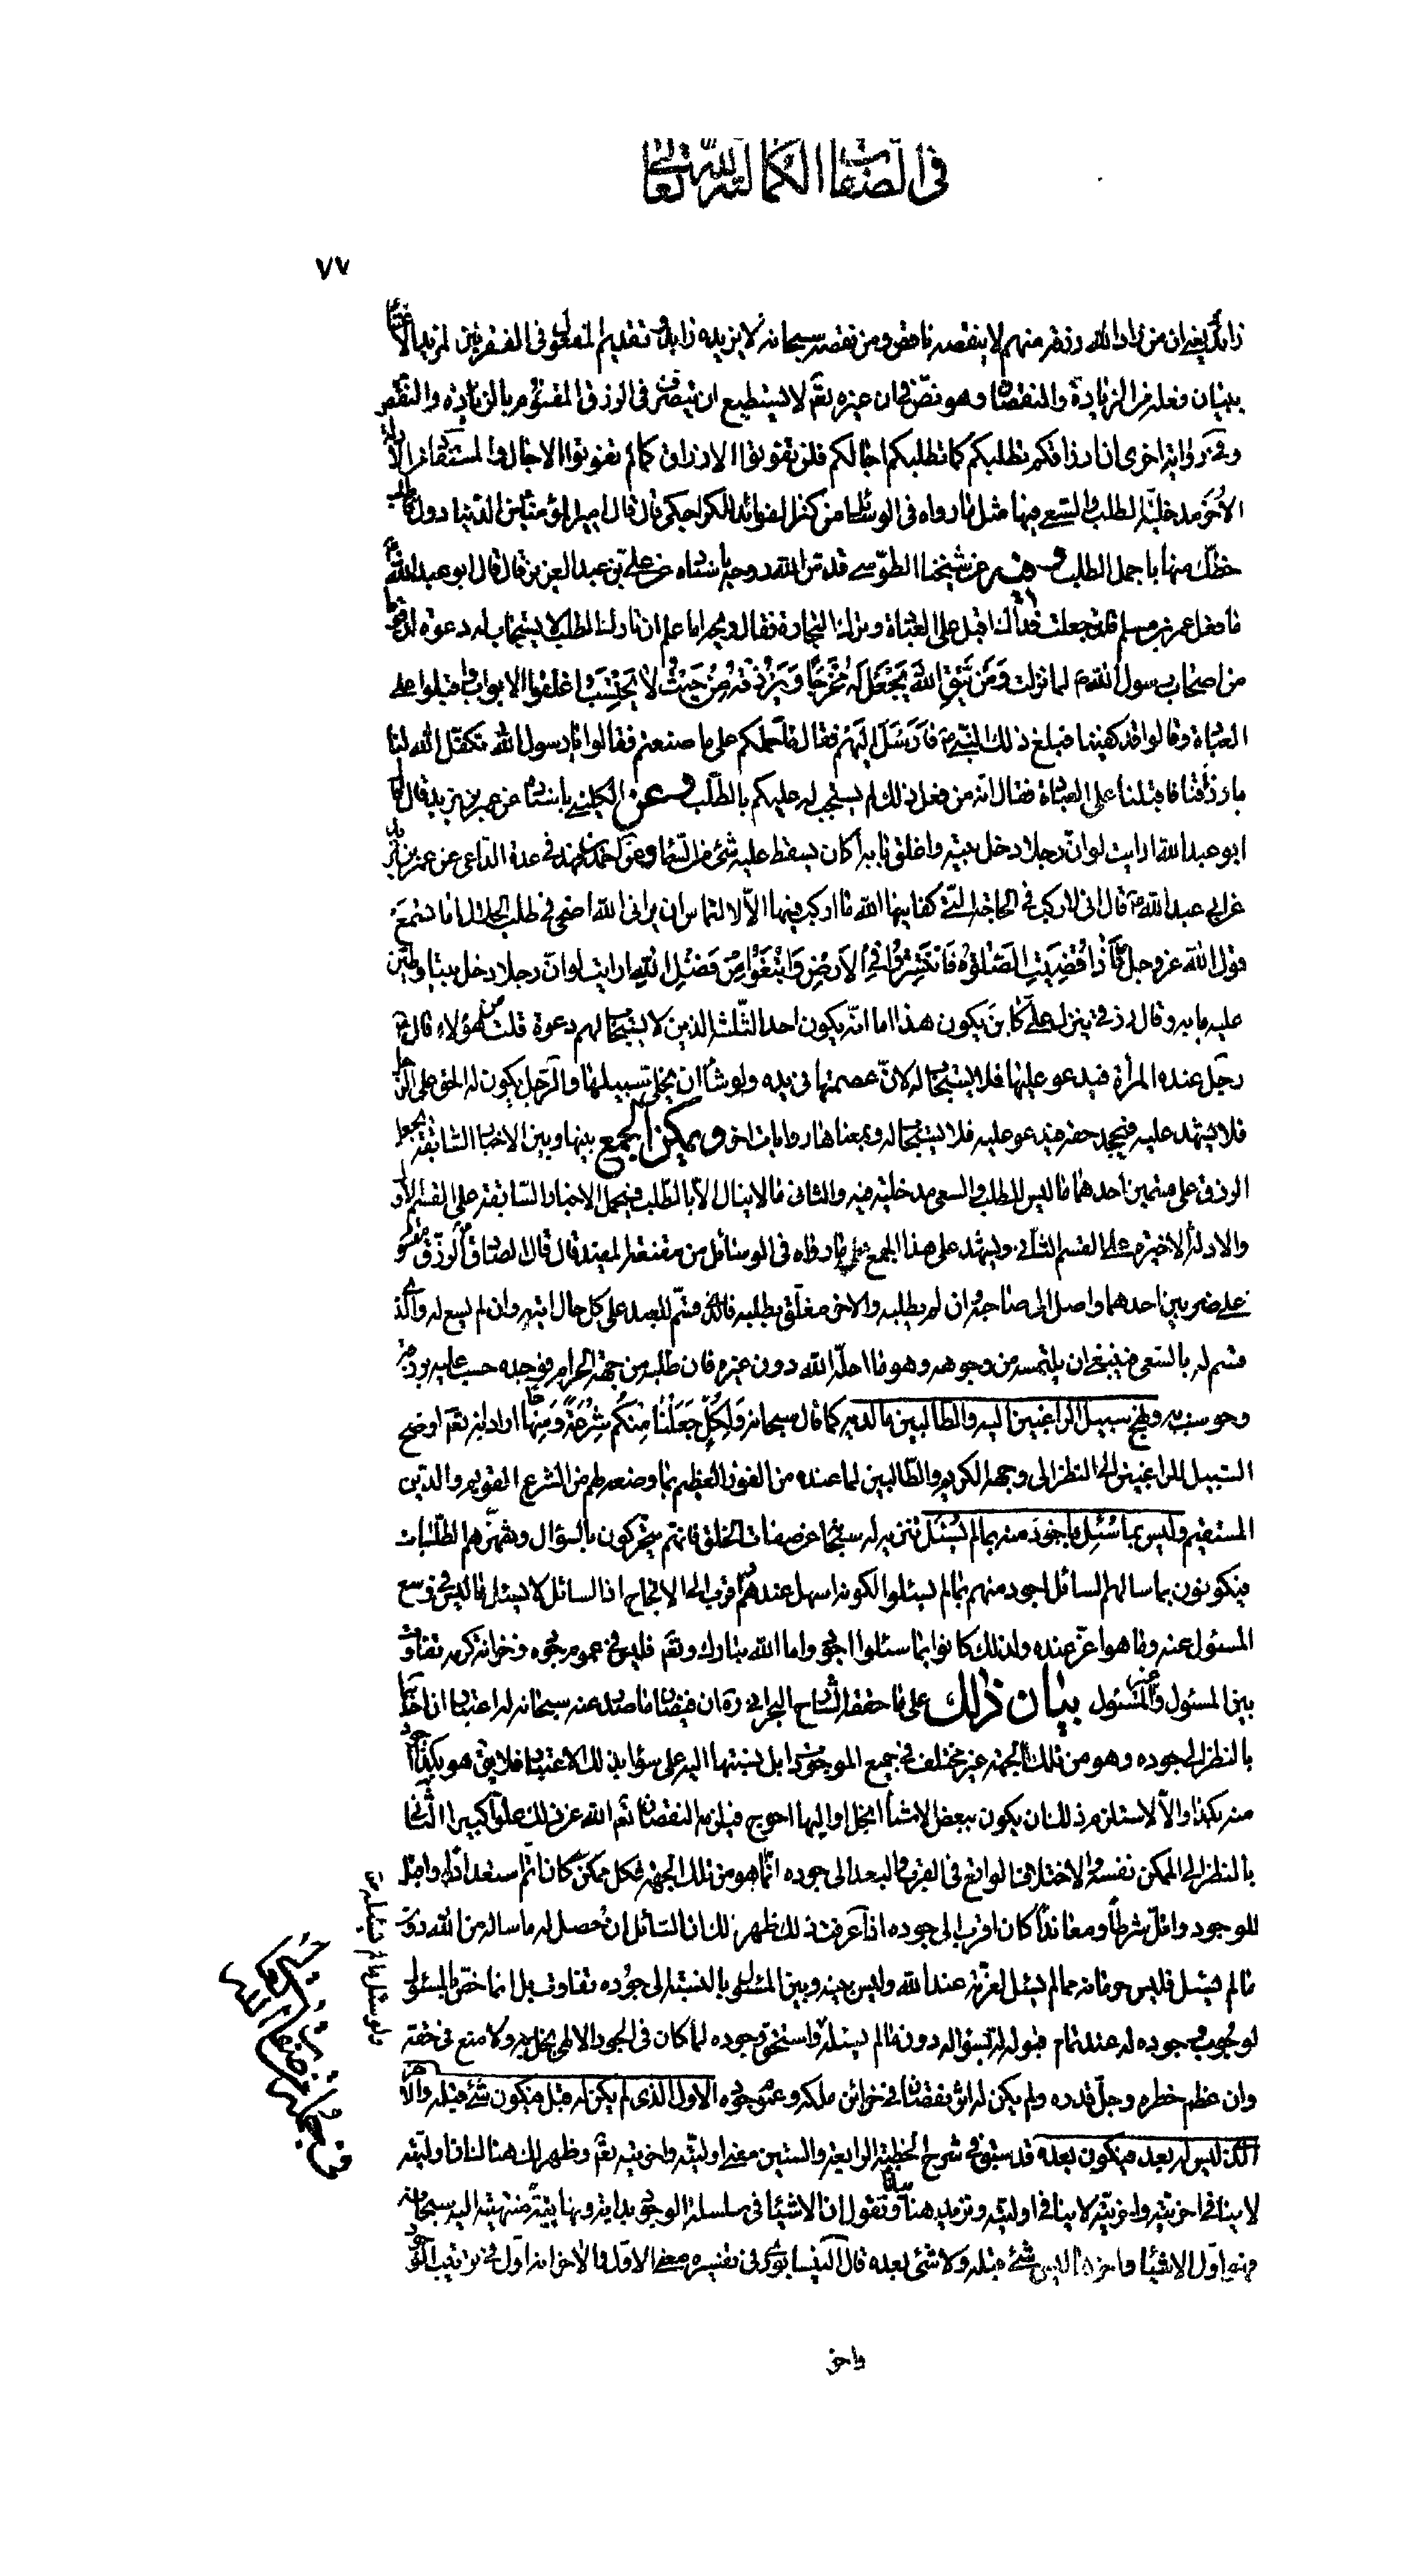 في الصفات الكمالية لله تعالى
٧٧
زائد يعني ان من زاد الله رزقه منهم لا ينقصه ناقص ومن نقصه سبحانه لا يزيده زايد وتقديم المفعول في الفقرتين لمزيد الاعتناء
ببيان فعله من الزيادة والنقصان وهو نصّ في ان غيره تعم لا يستطيع ان يتصرف في الرزق المقسوم بالزيادة والنقص
وفي رواية اخرى ان ارزاقكم تطلبكم كما تطلبكم اجالكم فلن تفوتوا الارزاق كما لم تفوتوا الاجال والمستفاد من الادلة
الاخر مدخلية الطلب والسعي فيها مثل ما رواه في الوسائل من كنز الفوائد للكراجكي قال قال امير المؤمنين الدنيا دول فاطلب
حظّك منها باجمل الطلب وفيه عن شيخنا الطوسي قدس الله روحه باسناده عن علي بن عبد العزيز قال قال ابو عبد الله ع
ما فعل عمر بن مسلم قلت جعلت فداك اقبل على العبادة وترك التجارة فقال ويحه اما علم ان تارك الطلب لا يستجاب له دعوة ان قوما
من اصحاب رسول الله ص لما نزلت وَمَن يَتَّقِ اللهَ يَجْعَل لَهُ مَخْرَجًا وَيَرْزُقْهُ مِنْ حَيْثُ لَا يَحْتَسِبُ اغلقوا الابواب واقبلوا على
العبادة وقالوا قد كفينا فبلغ ذلك النبي ص فارسل اليهم فقال ما حملكم على ما صنعتم فقالوا يا رسول الله تكفّل الله لنا
بارزاقنا فاقبلنا على العبادة فقال انه من فعل ذلك لم يستجب له عليكم بالطلب وعن الكليني باسناده عن عمر بن يزيد قال قال
ابو عبد الله ارايت لو انّ رجلا دخل بيته واغلق بابه أكان يسقط عليه شئ من السماء وعن احمد بن فهد في عدة الداعي عن عمر بن يزيد
عن ابي عبد الله ع قال اني لاركب في الحاجة التي كفاينها الله ما اركب فيها الا لالتماس ان يراني الله اضحى في طلب الحلال اما تسمع
قول الله عز وجل فَإِذَا قُضِيَتِ الصَّلوةُ فَانْتَشِرُوا فِي الْأَرْضِ وَابْتَغُوا مِنْ فَضْلِ اللهِ ارايت لو انّ رجلا دخل بيتا وطيّن
عليه بابه وقال رزقي ينزل عليّ كان يكون هذا اما انّه يكون احد الثلثة الذين لا يستجاب لهم دعوة قلت من هؤلاء قال ع
رجل عنده المرأة فيدعو عليها فلا يستجاب له لانّ عصمتها في يده ولو شاء ان يخلي سبيلها والرجل يكون له الحق على الرجل
فلا يشهد عليه فيجحد حقه فيدعو عليه فلا يستجاب له وبمعناها روايات اخر ويمكن الجمع بينها وبين الاخبار السابقة بجعل
الرزق على قسمين احدهما ما ليس للطلب والسعي مدخلية فيه والثاني ما لا ينال الا بالطلب فيحمل الاخبار السابقة على القسم الاول
والادلة الاخيرة على القسم الثاني ويشهد على هذا الجمع ما رواه في الوسائل من مقنعة المفيد قال قال الصادق ع الرزق مقسوم
على ضربين احدهما واصل الى صاحبه وان لم يطلبه والاخر معلّق بطلبه فالذي قسّم للعبد على كل حال اتيه وان لم يسع له والذي
قسم له بالسعي فينبغي ان يلتمسه من وجوهه وهو ما احلّه الله دون غيره فان طلبه من جهة الحرام فوجده حسب عليه برزقه
وحوسب به ونهج سبيل الراغبين اليه والطالبين ما لديه كما قال سبحانه وَلِكُلٍّ جَعَلْنَا مِنْكُم شِرْعَةً وَمِنْهَاجًا اراد انه تعم اوضح
السبيل للراغبين الى النظر الى وجهه الكريم والطالبين لما عنده من الفوز العظيم بما وضعه لهم من الشرع القويم والدين
المستقيم وليس بما سُئل باجود منه بما لم يُسئل تنزيه له سبحانه عن صفات الخلق فانهم يتحركون بالسؤال وتهزّهم الطلبات
فيكونون بما سالهم السائل اجود منهم بما لم يسئلوا لكونه اسهل عندهم واقرب الى الانجاح اذ السائل لا يسئل ما ليس في وسع
المسئول عنه وما هو اعزّ عنده ولذلك كانوا بما سئلوا اجود واما الله تبارك وتعم فليس في عموم جوده وخزانة كرمه تفاوت
بين المسئول وغير المسئول بيان ذلك على ما حققه الشارح البحراني ره ان فيضان ما صدر عنه سبحانه له اعتباران احدهما
بالنظر الى جوده وهو من تلك الجهة غير مختلف في جميع الموجودات بل نسبتها اليه على سواء بذلك الاعتبار فلا يق هو بكذا اجود
منه بكذا والا لاستلزم ذلك ان يكون ببعض الاشياء ابخل او اليها احوج فيلزمه النقصان تعم الله عن ذلك علوّا كبيرا الثاني
بالنظر الى الممكن نفسه والاختلاف الواقع في القرب والبعد الى جوده انّما هو من تلك الجهة فكل ممكن كان اتم استعدادا واقبل
للوجود واقلّ شرطا ومعاندا كان اقرب الى جوده اذا عرفت ذلك ظهر لك ان السائل ان حصل له ما ساله من الله دون
ما لم يسئل فليس حرمانه مما لم يسئل لعزّته عند الله وليس بينه وبين المسئول بالنسبة الى جوده تفاوت بل انما خصّ بالمسئول
لوجوب وجوده له عند تمام قبوله له بسؤاله دون ما لم يسئله ولو سئل ما لم يسئله واستحق وجوده لما كان في الجود الالهي بخل به ولا منع في حقه
وان عظم خطره وجلّ قدره ولم يكن له اثر نقصان في خزائن ملكه وعموم جوده الاول الذي لم يكن له قبل فيكون شئ قبله والاخر
الذي ليس له بعد فيكون بعده قد سبق في شرح الخطبة الرابعة والستين معنى اوليّته واخريته تعم وظهر لك هنالك ان اوليّته
لا ينافي اخريّته واخريّته لا ينافي اوليّته ونزيد هنا بيانا ونقول ان الاشياء في سلسلة الوجود بداية ونهاية منتهية اليه سبحانه
فهو اوّل الاشياء واخرها ليس شئ قبله ولا شئ بعده قال النيسابوري في تفسيره معنى الاوّل والاخر انه اوّل في ترتيب الوجود
واخر